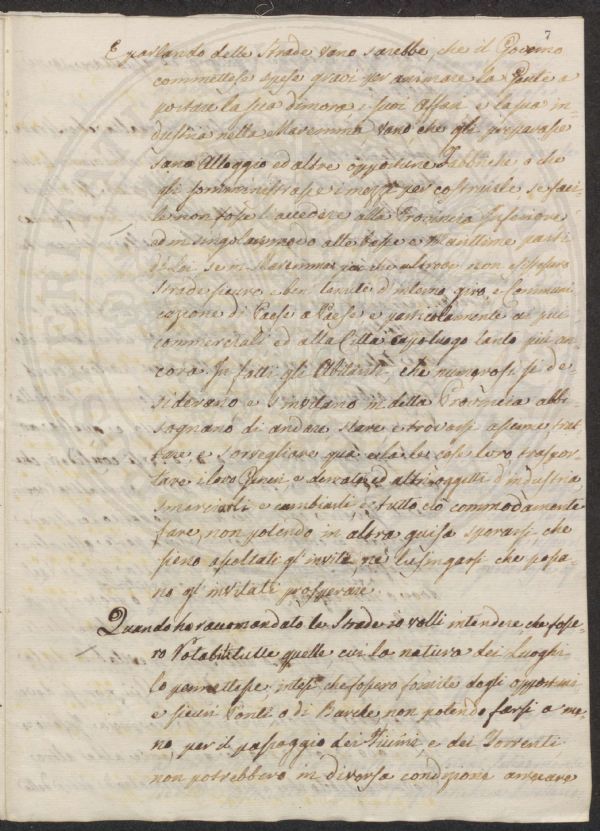 7
E parlando delle Strade vano sarebbe, che il Governo
commettesse spese gravi per animare la Gente a
portare la sua dimora i suoi Affari e la sua in-
dustria nella Maremma, vano che gli preparasse
sano Alloggio ed altre opportune Fabbriche o che
gli somministrasse i mezzi per costruirle, se faci-
le non fosse l'accedere alla Provincia Inferiore
ed in singolar modo alle basse e Marittime parti
di Lei se in Maremma più che altrove non esistessero
Strade sicure e ben tenute d'interno giro e Communi-
cazione di Paese a Paese e particolarmente ai più
commerciali ed alla Città capoluogo tanto più an-
cora. In fatti gli Abitanti, che numerosi si de-
siderano e s'invitano in detta Provincia abbi-
sognano di andare stare e trovarsi assieme trat-
tare, e sorvegliare quà e là le cose loro traspor-
tare i loro Generi e derrate, ed altri oggetti d'industria
smerciarli e cambiarli e tutto ciò commodamente
fare, non potendo in altra guisa sperarsi che
sieno ascoltati gl'inviti, ne lusingarsi che possa-
no gl'invitati prosperare.
Quando ho raccomandato le Strade io volli intendere che fosse-
ro Rotabili tutte quelle cui la natura dei Luoghi
lo permettesse, intesi che fossero fornite dagli opportuni
e sicuri Ponti o di Barche non potendo farsi a me-
no, per il passaggio dei Fiumi e dei Torrenti
non potrebbero in diversa condizione arrecare